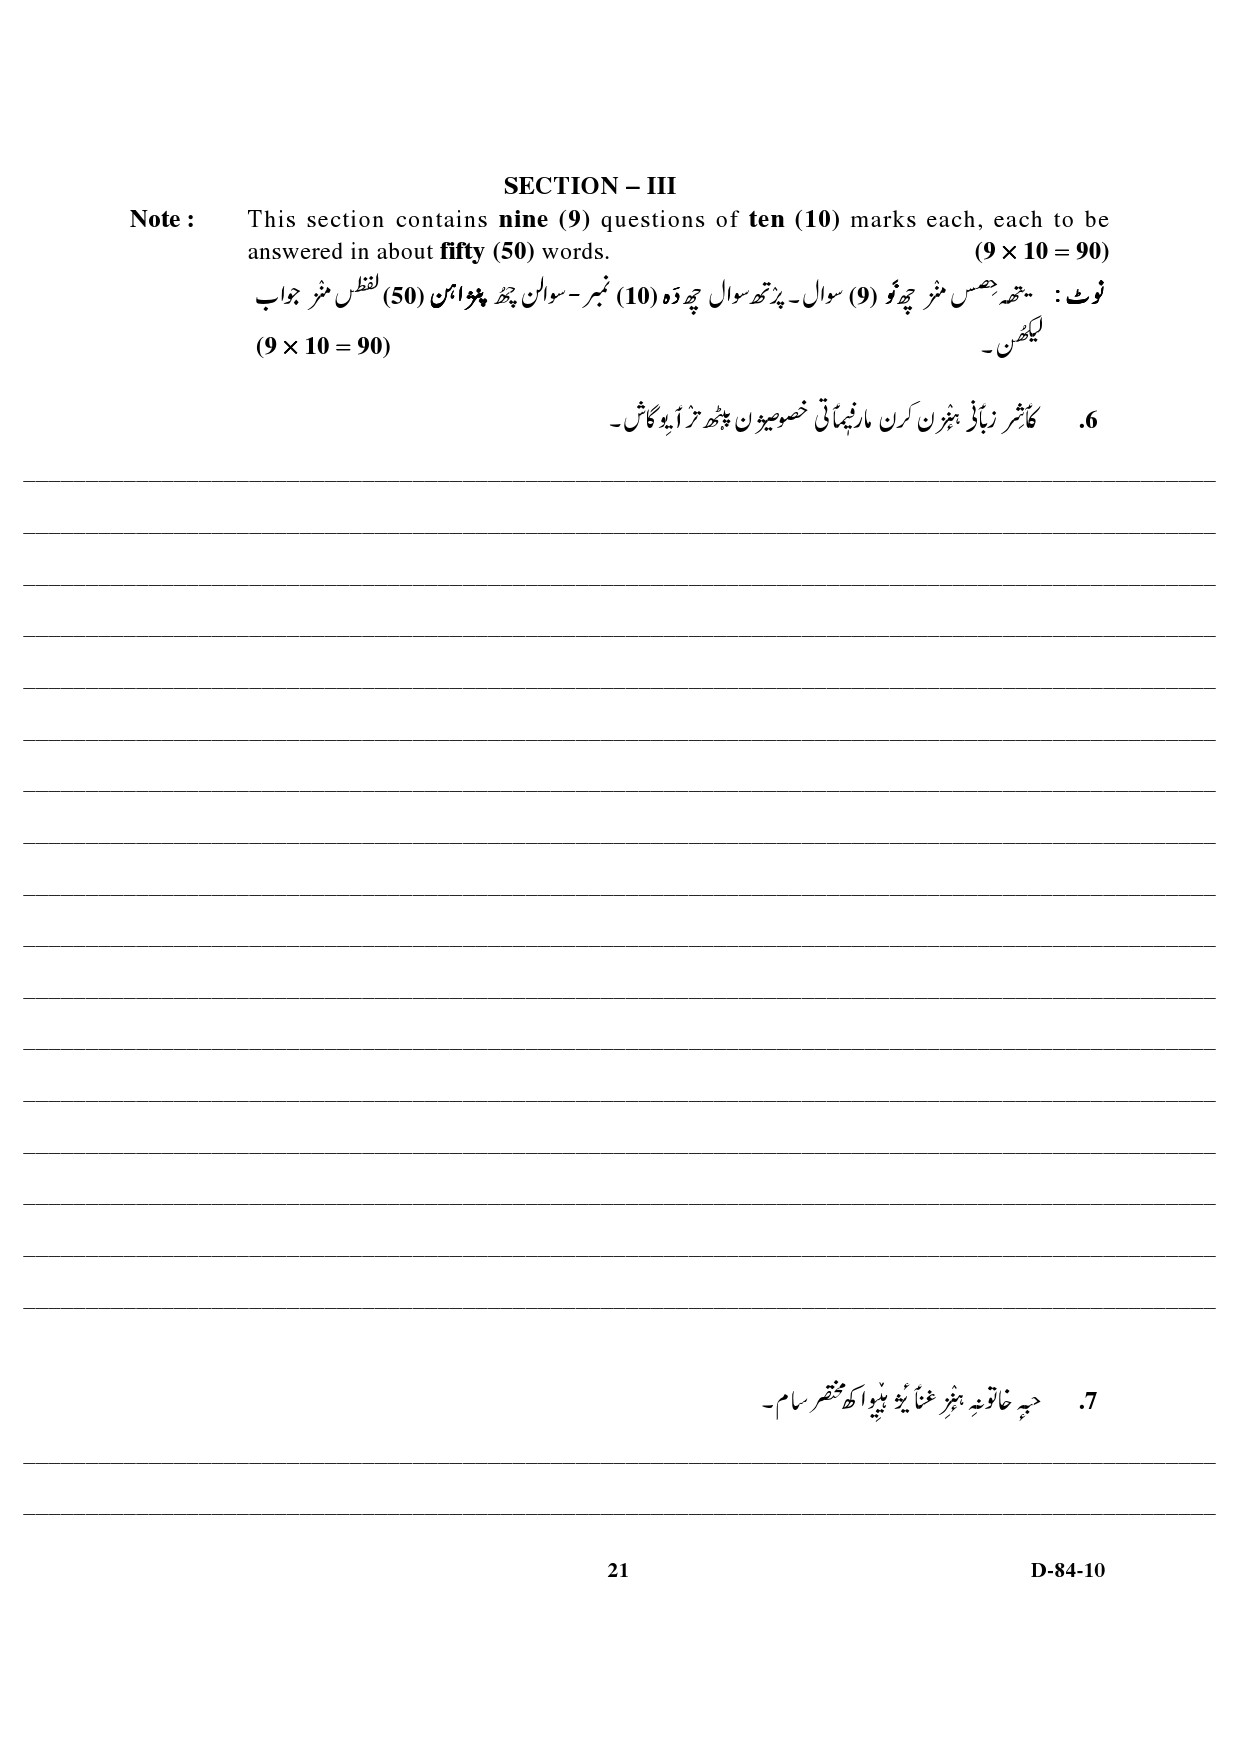 SECTION – III
Note : This section contains nine (9) questions of ten (10) marks each, each to be
answered in about fifty (50) words. (9 × 10 = 90)
نوٹ : یتھہ حِصس منٛز چھِ نَو (9) سوال۔ پرٛتھ سوال چھِ دَہ (10) نمبر - سوالن چھُ پنٛژاہن (50) لفظن منٛز جواب
لیکھُن ۔ (9 × 10 = 90)
6. کٲشِر زبٲنی ہنٛزن کرن مارفیمٲتی خصوصیژن پیٚٹھ ترٛٲیو گاش۔
7. حبہٕ خاتونہِ ہنٛزِ غنٲیژ ہیٚیو اکھ مختصر سام۔
21
D-84-10